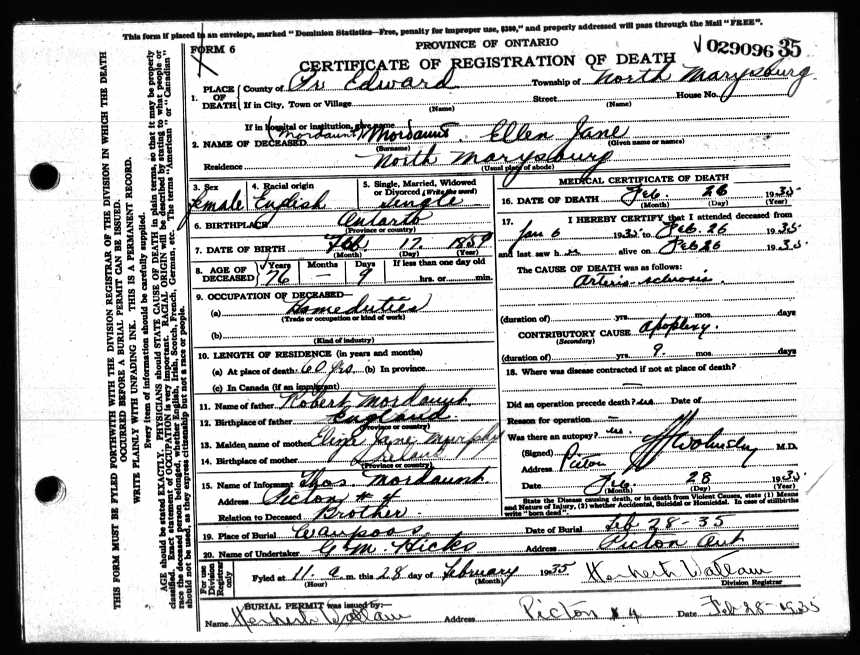 This form if placed in an envelope, marked "Dominion Statistics—Free, penalty for improper use, $300," and properly addressed will pass through the Mail "FREE".
FORM 6
PROVINCE OF ONTARIO
029096 35
CERTIFICATE OF REGISTRATION OF DEATH
1. PLACE OF DEATH
County of Pr Edward Township of North Marysburg
If in City, Town or Village (Name) Street (Name) House No.
If in hospital or institution, give name
(Mordaunt)
2. NAME OF DECEASED Mordaunt Ellen Jane
(Surname) (Given name or names)
Residence North Marysburg
(Usual place of abode)
3. Sex Female
4. Racial origin English
5. Single, Married, Widowed or Divorced (Write the word) Single
6. BIRTHPLACE Ontario
(Province or country)
7. DATE OF BIRTH Feb 17 1859
(Month) (Day) (Year)
8. AGE OF DECEASED Years 76 Months — Days 9 If less than one day old hrs. or min.
9. OCCUPATION OF DECEASED—
(a) Home duties
(Trade or occupation or kind of work)
(b)
(Kind of industry)
10. LENGTH OF RESIDENCE (in years and months)
(a) At place of death 60 yrs. (b) In province
(c) In Canada (if an immigrant)
11. Name of father Robert Mordaunt
12. Birthplace of father England
(Province or country)
13. Maiden name of mother Eliza Jane Murphy
14. Birthplace of mother Ireland
(Province or country)
15. Name of Informant Thos. Mordaunt
Address Picton # 4
Relation to Deceased Brother
MEDICAL CERTIFICATE OF DEATH
16. DATE OF DEATH Feb. 26 1935
(Month) (Day) (Year)
17. I HEREBY CERTIFY that I attended deceased from
Jan 6 1935 to Feb. 26 1935
and last saw h alive on Feb 26 1935
The CAUSE OF DEATH was as follows:
Arterio-sclerosis.
(duration of) yrs. mos. days
CONTRIBUTORY CAUSE apoplexy.
(Secondary)
(duration of) yrs. 9. mos. days
18. Where was disease contracted if not at place of death?
—
Did an operation precede death? no Date of
Reason for operation —
Was there an autopsy? no.
(Signed) M.D.
Address Picton
Date Feb. 28 1935
(Month) (Day) (Year)
State the Disease causing death, or in death from Violent Causes, state (1) Means and Nature of Injury, (2) whether Accidental, Suicidal or Homicidal. In case of stillbirths write "born dead".
19. Place of Burial Waupoos Date of Burial Feb 28-35
20. Name of Undertaker G. M. Hicks Address Picton Ont
For use Division Registrar only
Fyled at 11 a m. this 28 day of February 1935 Herbert Vallam
(Hour) (Month) Division Registrar
BURIAL PERMIT was issued by:—
Name Herbert Vallam Address Picton # 4 Date Feb 28-1935
THIS FORM MUST BE FYLED FORTHWITH WITH THE DIVISION REGISTRAR OF THE DIVISION IN WHICH THE DEATH
OCCURRED BEFORE A BURIAL PERMIT CAN BE ISSUED.
WRITE PLAINLY WITH UNFADING INK. THIS IS A PERMANENT RECORD.
Every item of information should be carefully supplied.
AGE should be stated EXACTLY. PHYSICIANS should STATE CAUSE OF DEATH in plain terms, so that it may be properly
classified. Exact statement of OCCUPATION is very important. RACIAL ORIGIN will be described by stating to what people or
race the deceased person belonged, whether English, Irish, Scotch, French, German, etc. The terms "American" or "Canadian"
should not be used, as they express citizenship but not a race or people.